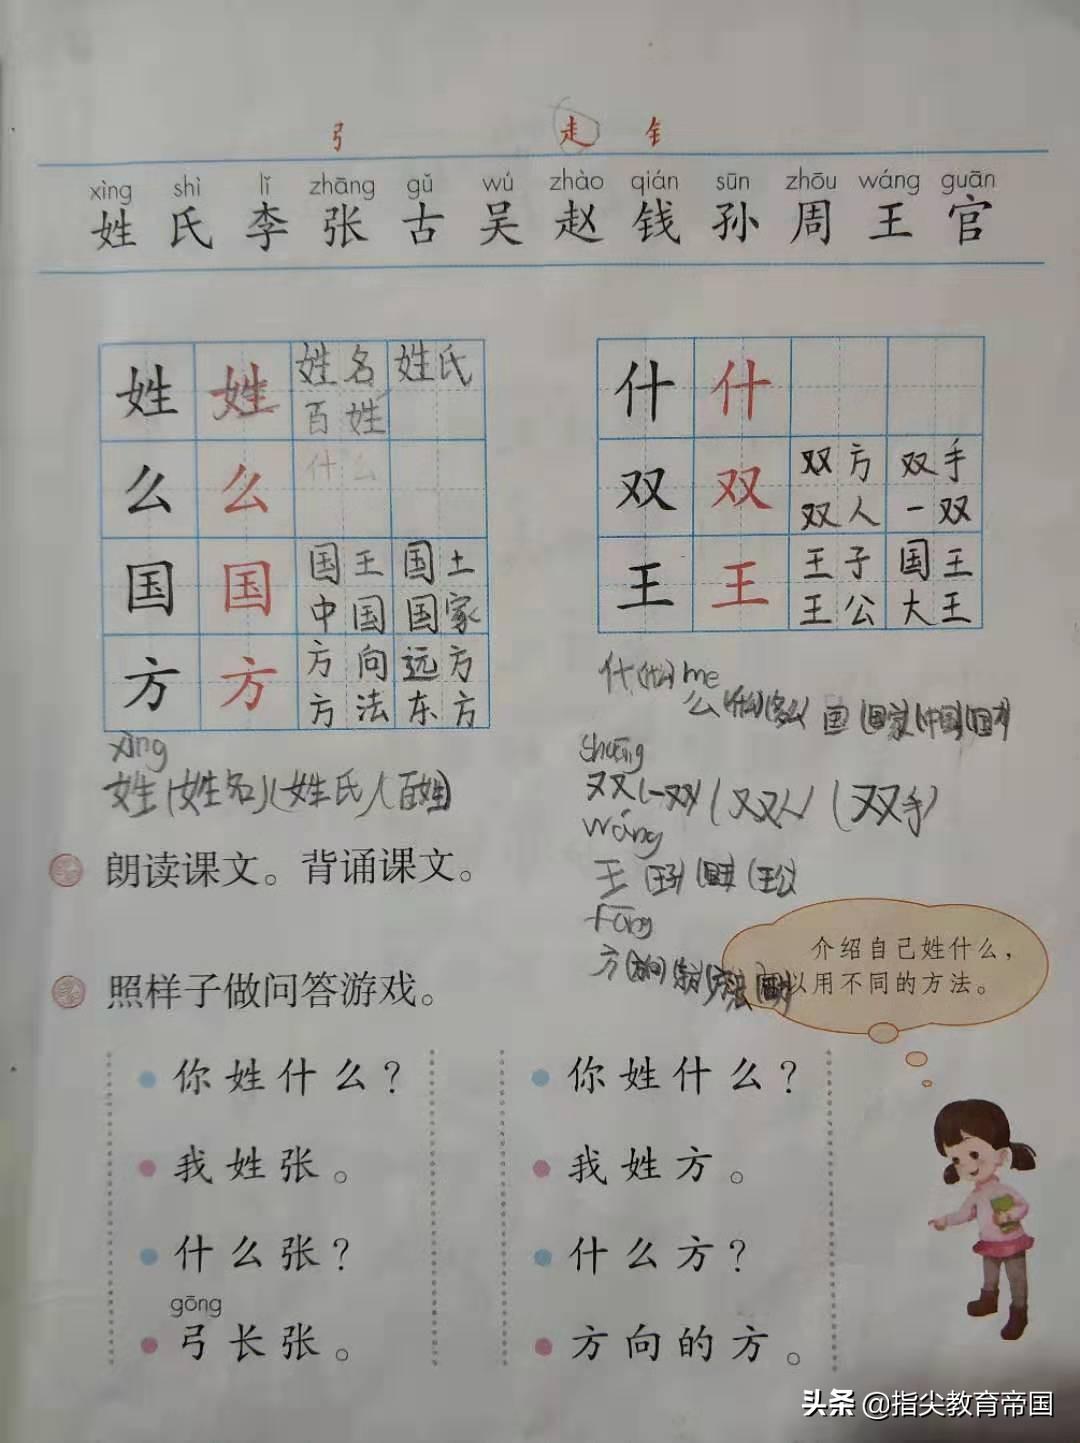 弓 走 钅
xìng shì lǐ zhāng gǔ wú zhào qián sūn zhōu wáng guān
姓 氏 李 张 古 吴 赵 钱 孙 周 王 官
姓 姓 姓名 姓氏
百姓
么 么 什么
国 国 国王 国土
中国 国家
方 方 方向 远方
方法 东方
什 什
双 双 双方 双手
双人 一双
王 王 王子 国王
王公 大王
xìng
姓(姓名)(姓氏)(百姓)
什(什么) me
么(什么)(多么) 国(国家)(中国)
shuāng
双(一双)(双人)(双手)
wáng
王(王子)(国王)(王公)
fāng
方(方向)
朗读课文。背诵课文。
照样子做问答游戏。
介绍自己姓什么，
以用不同的方法。
你姓什么？
我姓张。
什么张？
gōng
弓长张。
你姓什么？
我姓方。
什么方？
方向的方。
头条 @指尖教育帝国